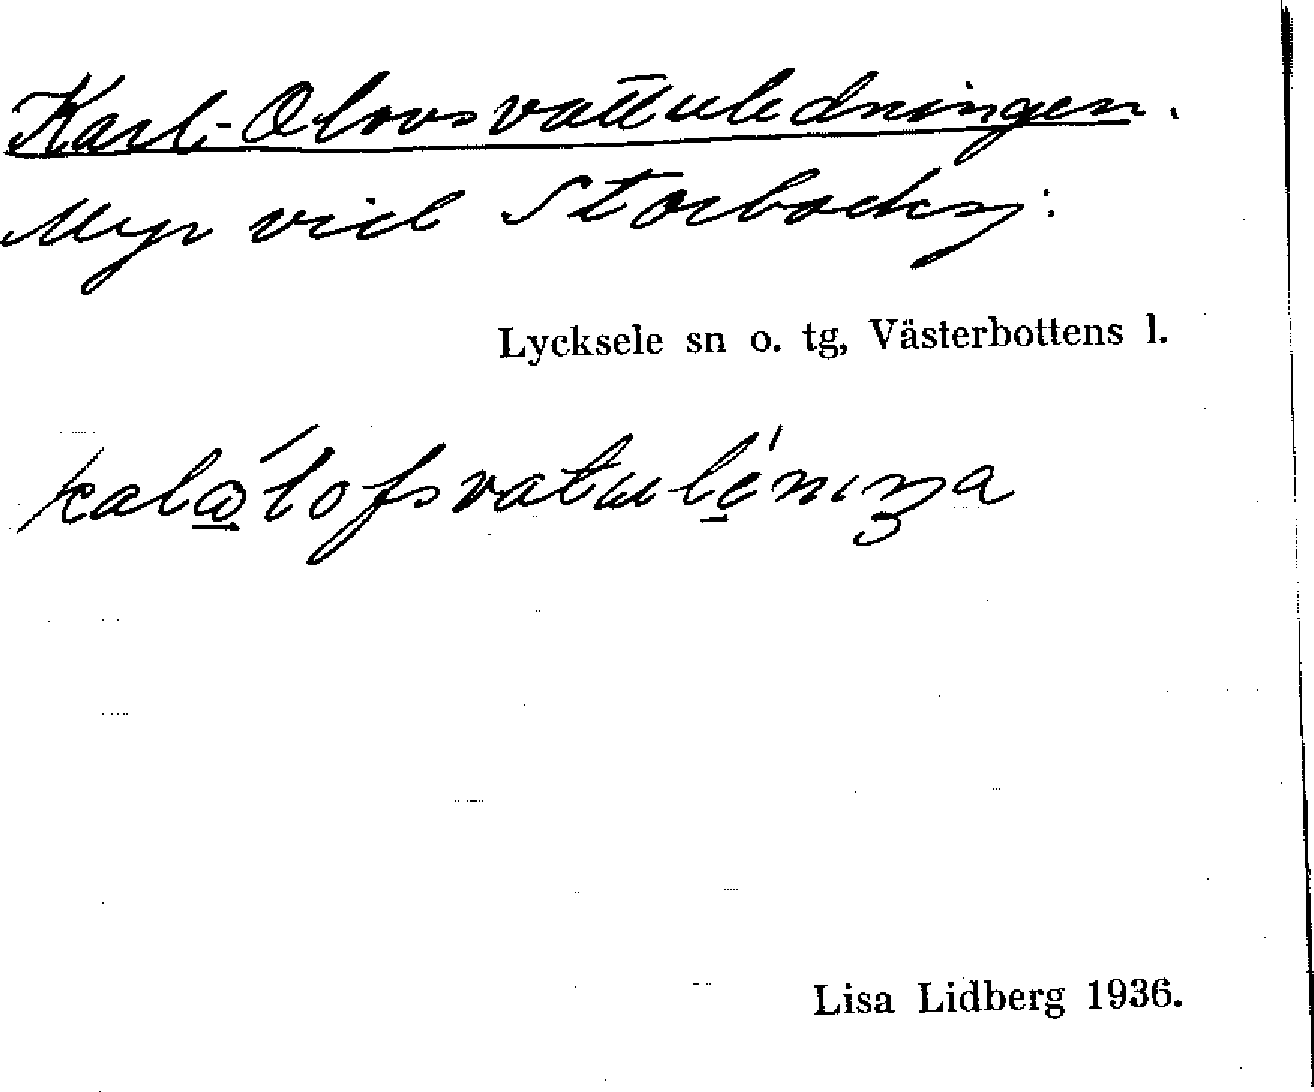 Karl-Olovsvattuledningen.
Myr vid
Lycksele sn o. tg, Västerbottens l.
Lisa Lidberg 1936.